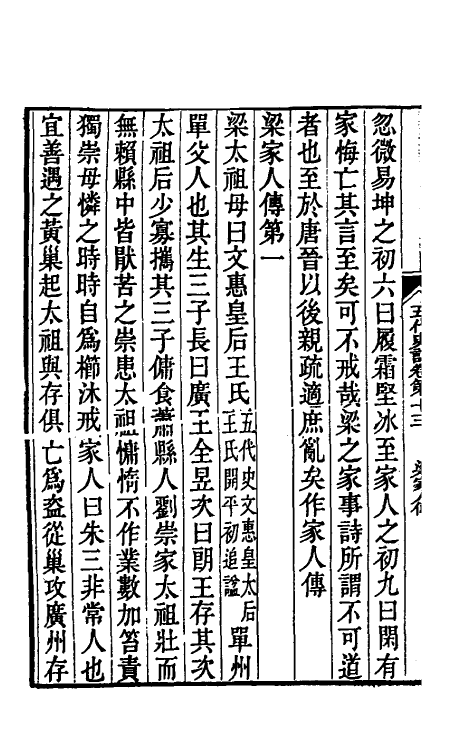 五代史記卷第十三
忽微易坤之初六曰履霜堅冰至家人之初九曰閑有
家悔亡其言至矣可不戒哉梁之家事詩所謂不可道
者也至於唐晉以後親疏適庶亂矣作家人傳
梁家人傳第一
梁太祖母曰文惠皇后王氏五代史文惠皇太后王氏開平初追諡單州
單父人也其生三子長曰廣王全昱次曰朗王存其次
太祖后少寡攜其三子傭食蕭縣人劉崇家太祖壯而
無賴縣中皆猒苦之崇患太祖慵惰不作業數加笞責
獨崇母憐之時時自爲櫛沐戒家人曰朱三非常人也
宜善遇之黃巢起太祖與存俱亡爲盗從巢攻廣州存